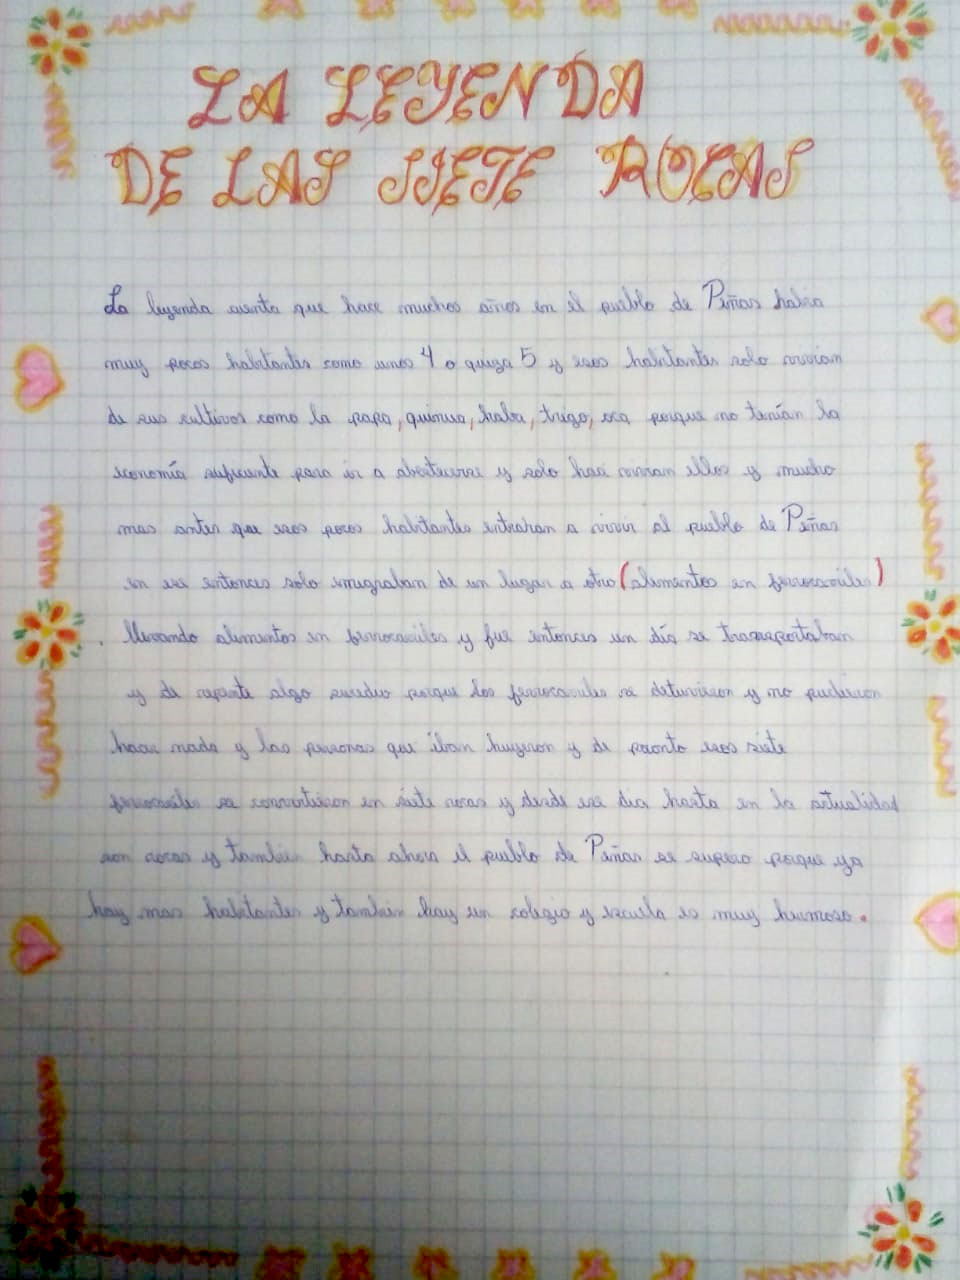 LA LEYENDA
DE LAS SIETE ROCAS
La leyenda cuenta que hace muchos años en el pueblo de Peñas habia
muy pocos habitantes como unos 4 o quiza 5 y esos habitantes solo vivian
de sus cultivos como la papa, quinua, haba, trigo, oca porque no tenían la
economía suficiente para ir a abastecerse y solo haci vivian ellos y mucho
mas antes que esos pocos habitantes entraban a vivir al pueblo de Peñas
en ese entonces solo emigraban de un lugar a otro (alimentos en ferrocaviles)
. llevando alimentos en ferrocaviles y fue entonces un día se transportaban
y de repente algo sucedio porque los ferrocaviles se detuvieron y no pudieron
hacer nada y las personas que iban huyeron y de pronto esos siete
ferrocaviles se convirtieron en siete rocas y desde ese dia hasta en la actualidad
son rocas y tambien hasta ahora el pueblo de Peñas se supero porque ya
hay mas habitantes y tambien hay un colegio y escuela es muy hermoso.